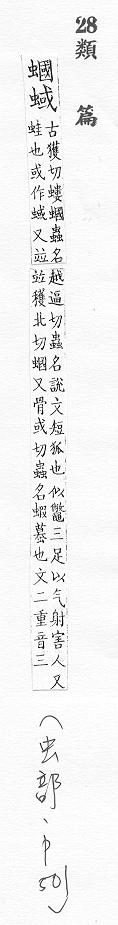 28類 篇
蟈蜮
古獲切螻蟈蟲名
蛙也或作蜮又竝
越逼切蟲名說文短狐也似鼈三足以气射害人又
竝獲北切蟈又骨或切蟲名蝦蟇也文二重音三
(虫部、中50)